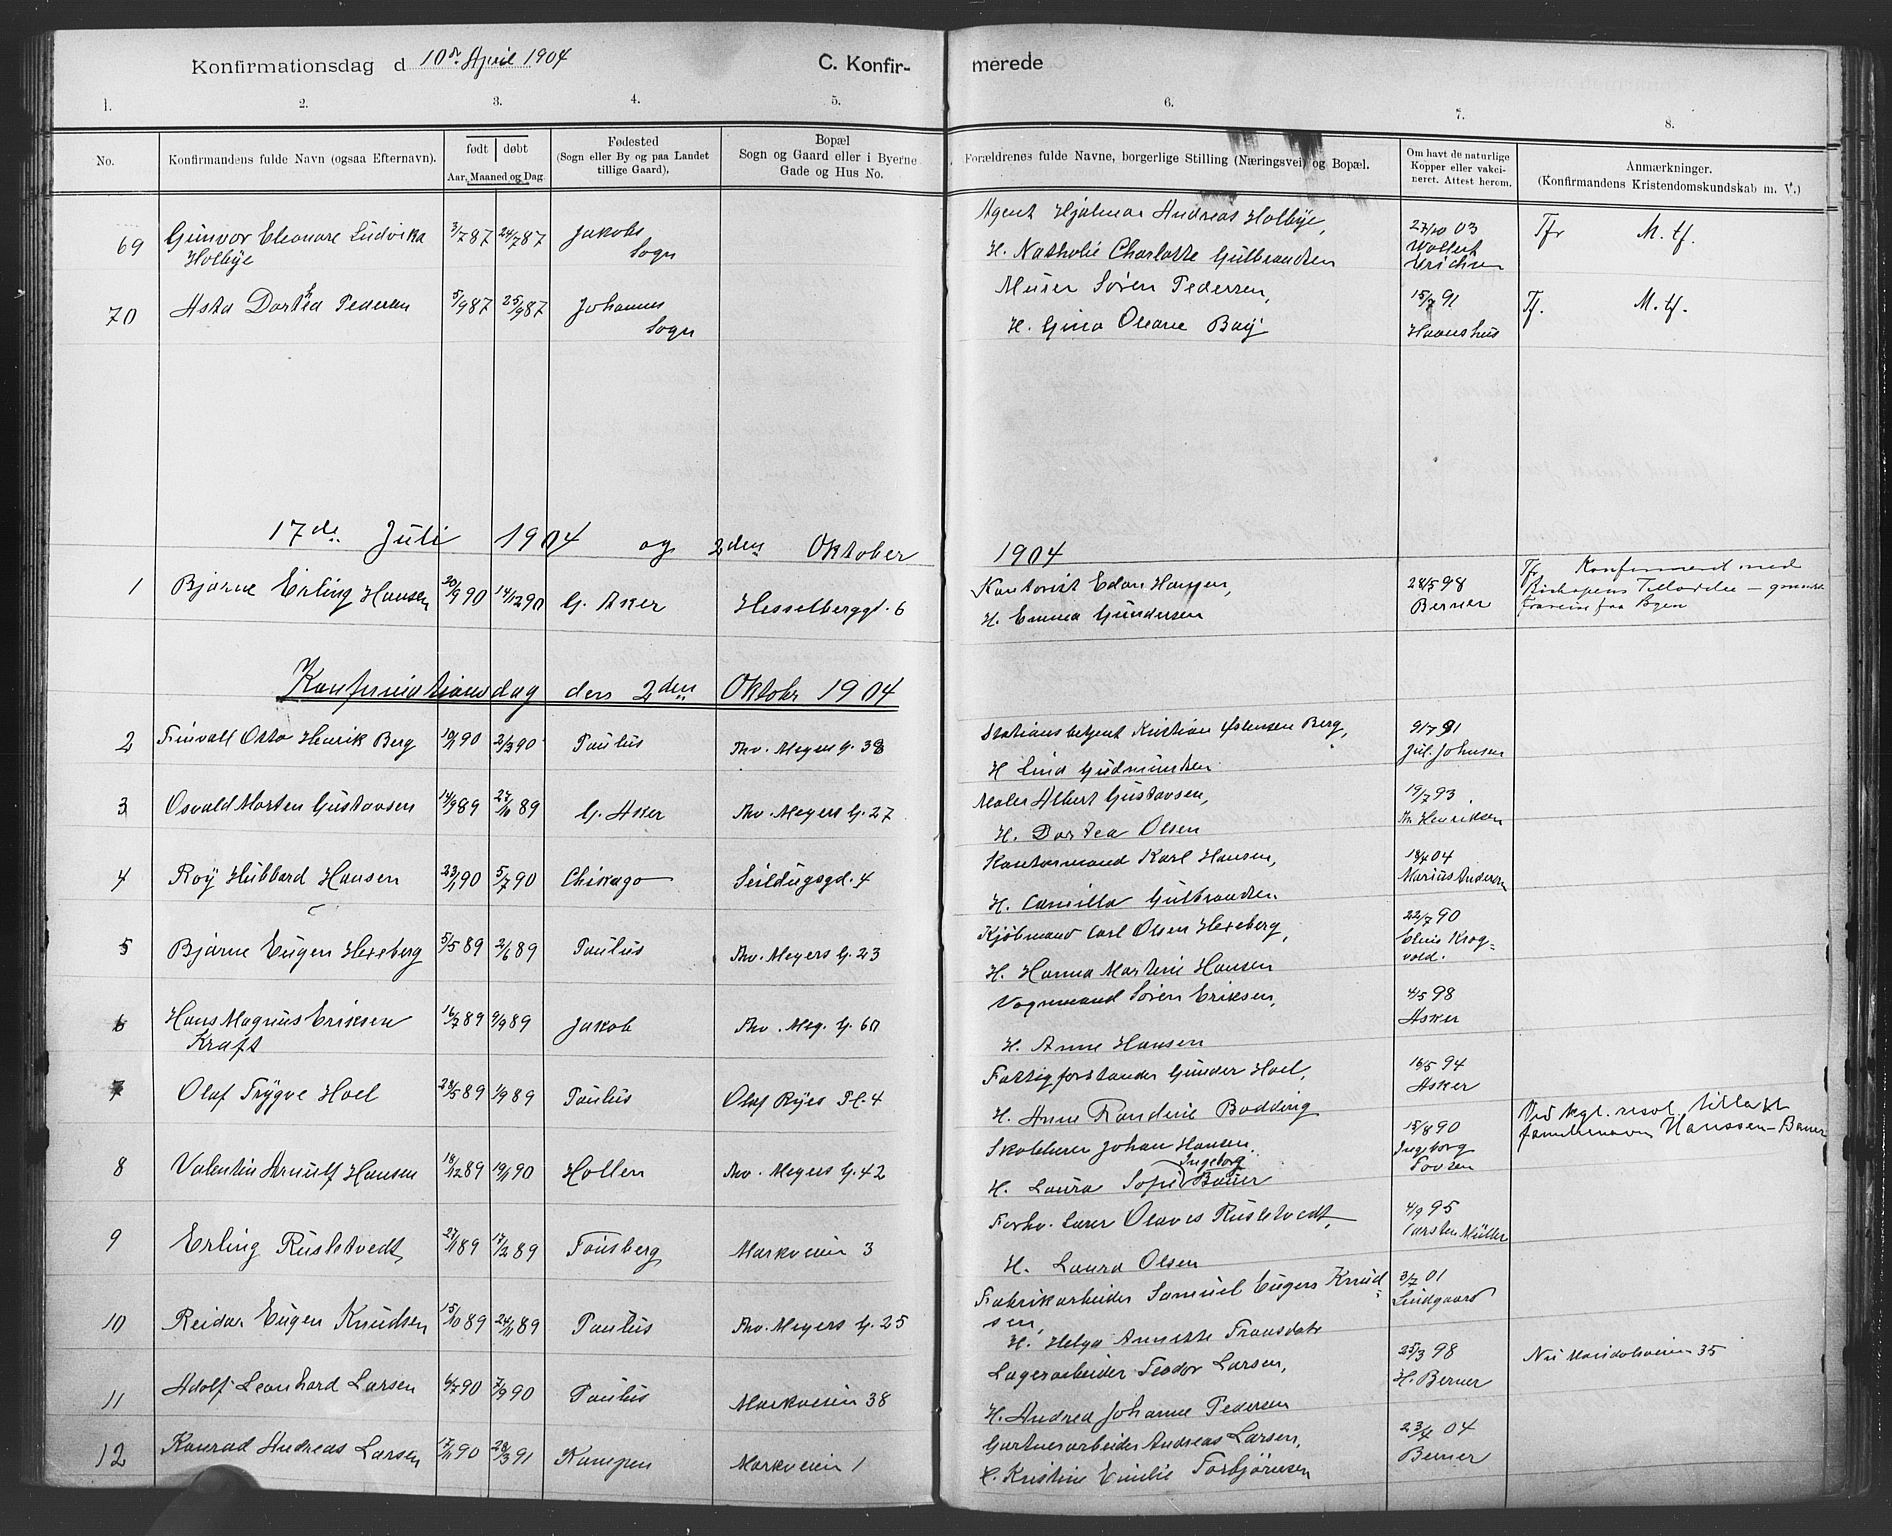 Konfirmationsdag d 10de April 1904
C. Konfir-
merede
1. 2. 3. 4. 5. 6. 7. 8.
No.
Konfirmandens fulde Navn (ogsaa Efternavn).
født døbt
Aar, Maaned og Dag.
Fødested
(Sogn eller By og paa Landet
tillige Gaard).
Bopæl
Sogn og Gaard eller i Byerne
Gade og Hus No.
Forældrenes fulde Navne, borgerlige Stilling (Næringsvei) og Bopæl.
Om havt de naturlige
Kopper eller vakci-
neret. Attest herom.
Anmærkninger.
(Konfirmandens Kristendomskundskab m. V.)
69 Gunvor Eleonore Ludvika 3/7 87 24/7 87 Jakobs Agent Hjalmar Andreas Holbye, 27/10 03 Tfr M. tf.
Holbye Sogn H. Nathalie Charlotte Gulbrandsen Wollert
Erichsen
70 Asta Dortea Pedersen 5/9 87 25/9 87 Johannes Murer Søren Pedersen, 15/7 91 Tf. M. tf.
Sogn H. Gina Oleane Bay Haanshus
17de Juli 1904 og 2den Oktober 1904
1 Bjarne Erling Hansen 20/9 90 14/12 90 G. Aker Hesselberggd. 6 Kontorist Edon Hansen, 28/5 98 Tfr Konfirmeret med
H. Emma Gundersen Berner Biskopens Tilladelse —
Konfirmationsdag den 2den Oktobr 1904
2 Finvall Otto Henrik Berg 10/1 90 2/3 90 Paulus Thv. Meyers G. 38 Stationsbetjent Kristian Berg, 9/7 91
H Lina Gudmundsen Jul. Johnsen
3 Osvald Morten Gustavsen 14/9 89 27/10 89 G. Aker Thv. Meyers G. 27 Maler Albert Gustavsen, 19/7 93
H. Dortea Olsen Th. Henriksen
4 Roy Hubbard Hansen 23/1 90 5/7 90 Chikago Seildugsgd. 4 Kontormand Karl Hansen, 18/4 04
H. Camilla Gulbrandsen Marius Andersen
5 Bjarne Eugen Hexeberg 5/5 89 2/6 89 Paulus Thv. Meyers G. 23 Kjøbmand Carl Olsen Hexeberg, 22/7 90
H. Hanna Martine Hansen Krog-
vold.
6 Hans Magnus Eriksen 16/7 89 9/9 89 Jakob Thv. Mey. G. 60 Vognmand Søren Eriksen, 4/5 98
Kraft H. Anne Hansen Asker
7 Olaf Trygve Hoel 28/5 89 1/9 89 Paulus Olaf Ryes Pl. 4 Fattigforstander Gunder Hoel, 16/5 94
H. Anne Randine Bodding Asker
8 Valentin Arnulf Hansen 18/12 89 19/1 90 Hollen Thv. Meyers G. 42 Skolelærer Johan Hansen. 15/8 90 Ved kgl. resol. tillagt
H. Laura Sofie Ingeborg Bauer Ingeborg familienavn Hanssen-Bauer
9 Erling Rustetvedt 27/11 89 17/2 89 Tønsberg Markveien 3 Forhv. Lærer Olaves Rustetvedt, 4/9 95
H. Laura Olsen Carsten Müller
10 Reidar Eugen Knudsen 15/10 89 24/11 89 Paulus Thv. Meyers G. 25 Fabrikarbeider Samuel Eugers Knud- 3/7 01
sen, Lindgaard
H. Helga Annette Fransdatr
11 Adolf Leonhard Larsen 6/7 90 7/9 90 Paulus Markveien 38 Lagerarbeider Teodor Larsen, 25/3 98 Nu Maridalsveien 35
H. Andrea Johanne Pedersen H. Berner
12 Konrad Andreas Larsen 17/11 90 28/3 91 Kampen Markveien 1 Gartnerarbeider Andreas Larsen, 23/4 04
H. Kristine Emilie Torbjørnsen Berner